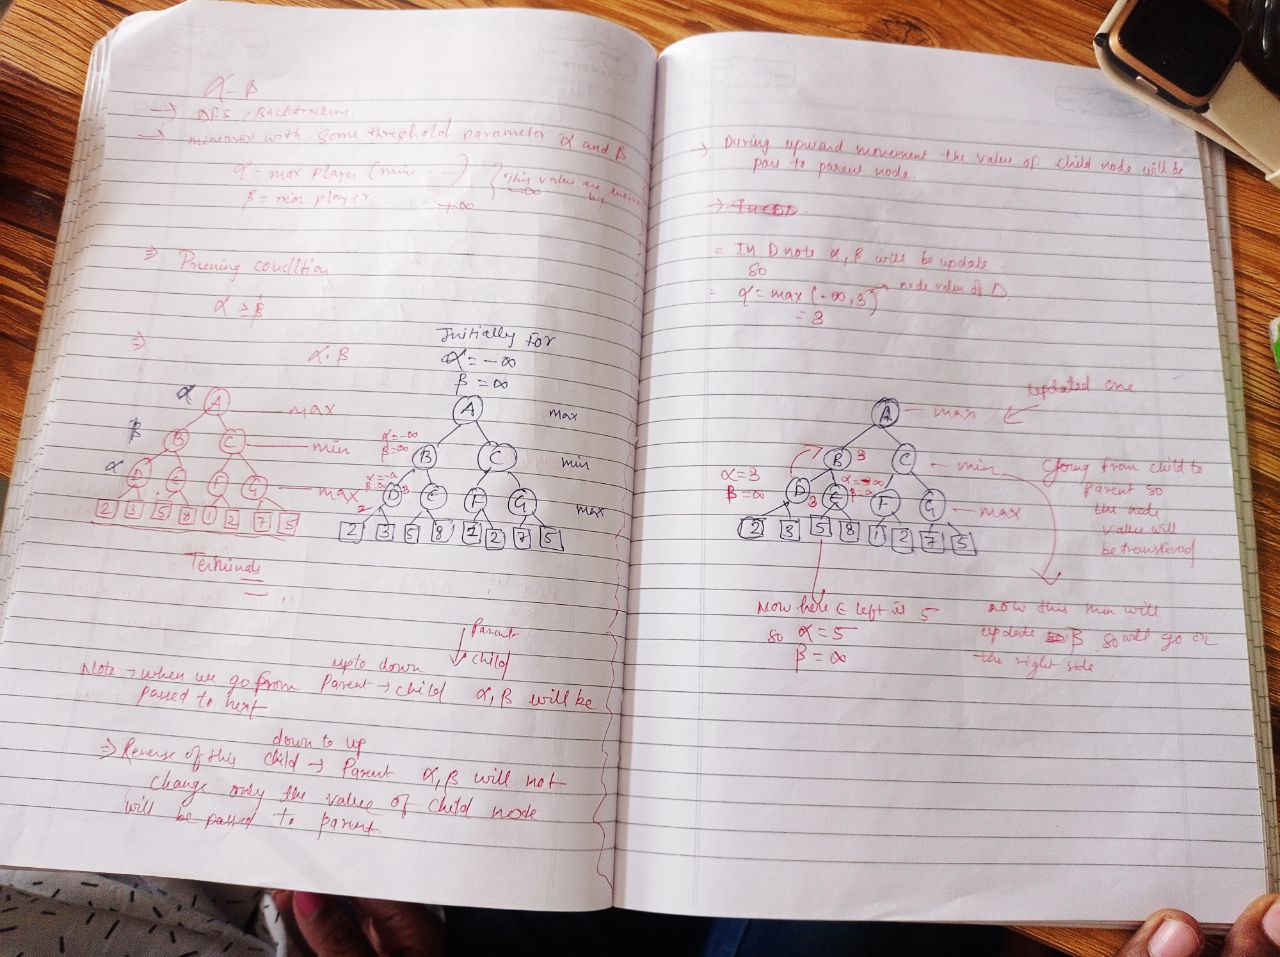 α-β
→ DFS, Backtracking
→ minimax with some threshold parameter α and β
α = max player
β = min player
+∞
{ This value are
-∞ by
⇒ Pruning condition
α ≥ β
⇒
α, β
Initially for
α = -∞
β = ∞
α A max
β B C min
α D E F G max
2 3 5 8 1 2 7 5
Terminals
A max
α = -∞
β = ∞
B C min
α = -∞
β = ∞
D 3 E F G max
2
2 3 5 8 1 2 7 5
Parent
↓ child
upto down
Note → when we go from Parent → child α, β will be
passed to next
down to up
⇒ Reverse of this child → Parent α, β will not
change only the value of child node
will be passed to parent
→ During upward movement the value of child node will be
pass to parent node.
= In D note α, β will be update.
so
= α = max (-∞, 3) → node value of D.
= 3
updated one
A max
B 3 C min
α = 3
β = ∞
D 3 E F G max
2 3 5 8 1 2 7 5
Going from child to
parent so
the node
value will
be transferred
Now here E left is 5
so α = 5
β = ∞
now this min will
update β so will go on
the right side